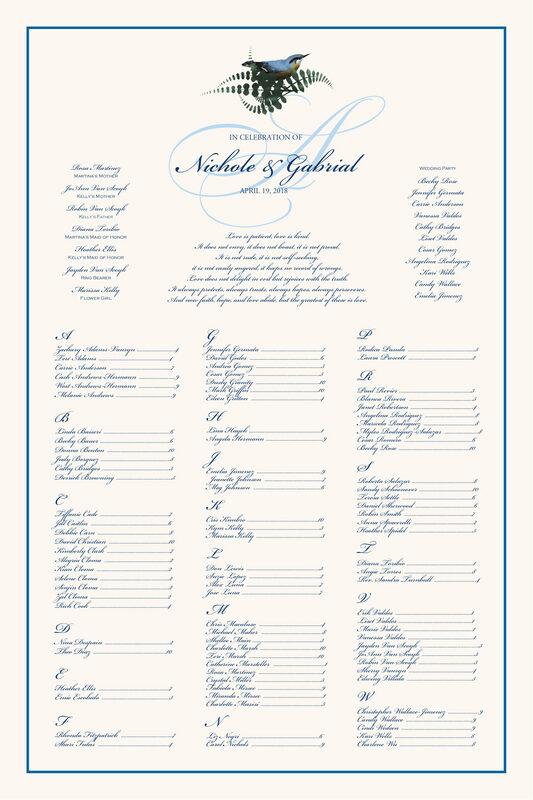 A
IN CELEBRATION OF
Nichole & Gabrial
APRIL 19, 2018
Rosa Martinez
MARTINA'S MOTHER
JoAnn Van Seogh
KELLY'S MOTHER
Robin Van Seogh
KELLY'S FATHER
Diana Toribio
MARTINA'S MAID OF HONOR
Heather Ellis
KELLY'S MAID OF HONOR
Jayden Van Seogh
RING BEARER
Marissa Kelly
FLOWER GIRL
Love is patient, love is kind.
It does not envy, it does not boast, it is not proud.
It is not rude, it is not self-seeking,
it is not easily angered, it keeps no record of wrongs.
Love does not delight in evil but rejoices with the truth.
It always protects, always trusts, always hopes, always perseveres.
And now faith, hope, and love abide, but the greatest of these is love.
WEDDING PARTY
Becky Rose
Jennifer Germata
Carrie Anderson
Vanessa Valdes
Cathy Bridges
Liset Valdes
Cesar Gomez
Angelina Rodriguez
Kari Wells
Candy Wallace
Emelia Jimenez
A
Zachary Adams-Vennyn
Teri Adams 4
Carrie Anderson
Cash Andrews-Hermann 9
West Andrews-Hermann 9
Melanie Andrews 9
B
Linda Baiseri 6
Becky Baner 6
Donna Benton 10
Judy Borquez
Cathy Bridges
Derick Browning
C
Tiffanie Cade
Jill Castles 6
Debbie Carn
David Christian
Kimberly Clark
Alegria Cloma
Kian Cloma
Selene Cloma
Senjin Cloma
Zyl Cloma
Rich Cook 4
D
Nina Despain
Theo Diaz 10
E
Heather Ellis
Ernie Escobedo
F
Rhonda Fitzpatrick
Shari Futas 4
G
Jennifer Germata
David Goles 6
Andrea Gomez
Cesar Gomez
Dusty Granity 10
Mark Griffel 10
Eileen Gritton 4
H
Lina Haugh
Angela Hermann 9
J
Emelia Jimenez 9
Jeanette Johnson
May Johnson 6
K
Cris Kimbro 10
Kym Kelly
Marissa Kelly
L
Don Lewis
Suzie Lopez
Alex Luna
Jose Luna
M
Chris Macaluso 4
Michael Maher
Shellee Main
Charlotte Marsh 10
Tori Marsh 10
Catherine Marstellar
Rosa Martinez
Crystal Miller
Fabiola Mirao 9
Miranda Mirao 9
Charlotte Marisi
N
Liz Negri 6
Carol Nichols 9
P
Rodica Panda
Laura Prescott
R
Paul Revier
Blanca Rivera
Janet Robertson 4
Angelina Rodriguez
Maricela Rodriguez
Myles Rodriguez-Salazar
Cesar Romero 6
Becky Rose 10
S
Roberta Salazar
Sandy Schoenover 10
Teresa Settle 6
Daniel Sherwood 6
Robin Smith
Anna Spinarelli
Heather Speidel
T
Diana Toribio
Angie Torres
Rev. Sandra Turnbull 4
V
Erik Valdes
Liset Valdes
Marie Valdes
Vanessa Valdes
Jayden Van Seogh
JoAnn Van Seogh
Robin Van Seogh
Sherry Vennyn 4
Edwing Villata
W
Christopher Wallace-Jimenez 9
Candy Wallace 9
Cindi Watson 9
Kari Wells
Charlene Wu